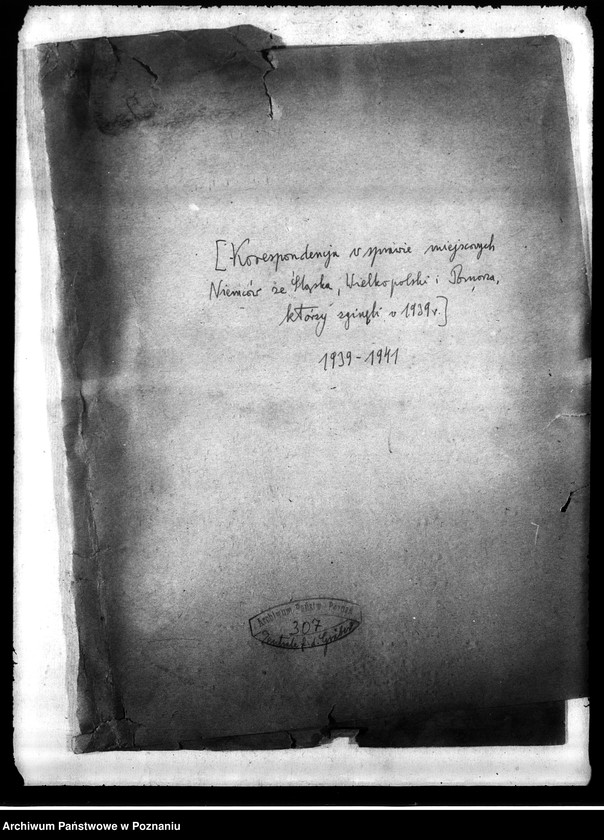 [Korespondencja w sprawie miejscowych
Niemców ze Śląska, Wielkopolski i Pomorza,
którzy zginęli w 1939 r.]
1939 - 1941
Archiwum Państw. Poznań
307
Zentrale f. d. Gräber
Archiwum Państwowe w Poznaniu